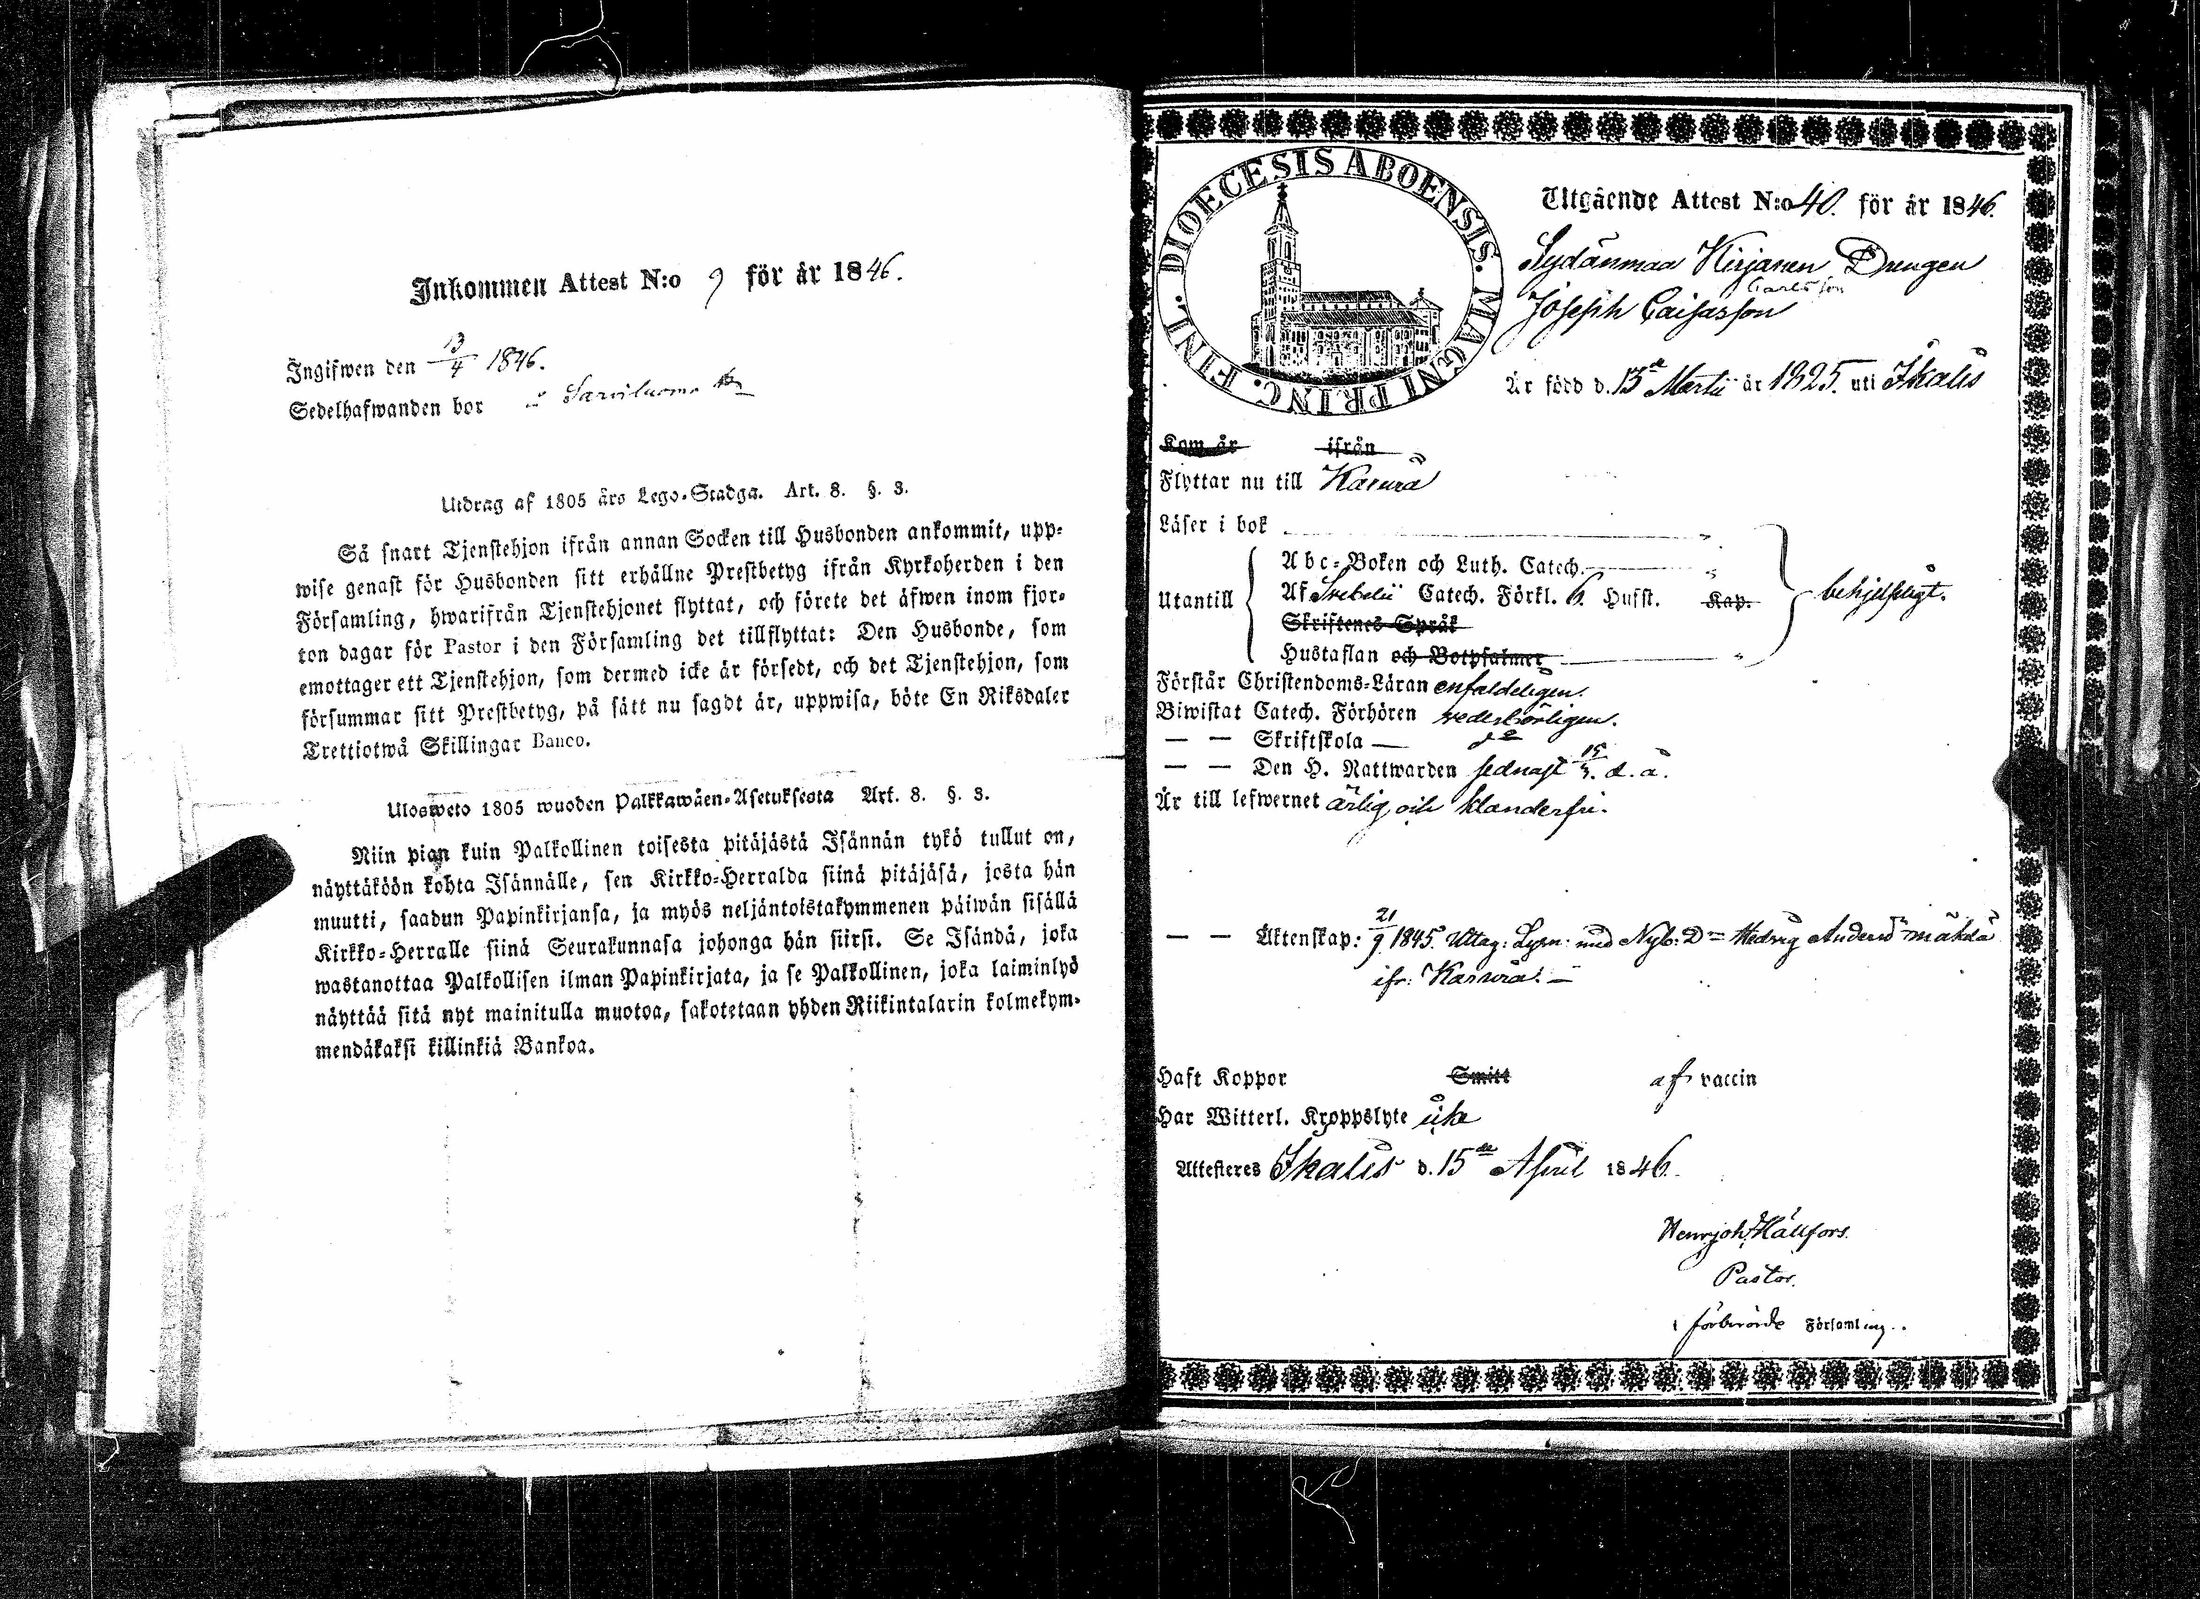 Inkommen Attest N:o 9 för år 1846.
Ingifwen den 13/4 1846.
Sedelhafwanden bor å
Utdrag af 1805 års Lego-Stadga. Art. 8. §. 3.
Så snart Tjenstehjon ifrån annan Socken till Husbonden ankommit, upp-
wise genast för Husbonden sitt erhållne Prestbetyg ifrån Kyrkoherden i den
Församling, hwarifrån Tjenstehjonet flyttat, och förete det äfwen inom fjor-
ton dagar för Pastor i den Församling det tillflyttat: Den Husbonde, som
emottager ett Tjenstehjon, som dermed icke är försedt, och det Tjenstehjon, som
försummar sitt Prestbetyg, på sätt nu sagdt är, uppwisa, böte En Riksdaler
Trettiotwå Skillingar Banco.
Ulosweto 1805 wuoden Palkkawäen-Asetuksesta Art. 8. §. 3.
Niin pian kuin Palkollinen toisesta pitäjästä Isännän tykö tullut on,
näyttäköön kohta Isännälle, sen Kirkko-Herralda siinä pitäjäsä, josta hän
muutti, saadun Papinkirjansa, ja myös neljäntoistakymmenen päiwän sisällä
Kirkko-Herralle siinä Seurakunnasa johonga hän siirsi. Se Isändä, joka
wastanottaa Palkollisen ilman Papinkirjata, ja se Palkollinen, joka laiminlyö
näyttää sitä nyt mainitulla muotoa, sakotetaan yhden Riikintalarin kolmekym-
mendäkaksi killinkiä Bankoa.
DIOECESIS ABOENSIS. MAGNI PRINC. FINL.
Utgående Attest N:o 40. för år 1846.
Sydänmaa Kirjanen Drengen
Carlsson
Joseph Caisasson
Är född d. 13de Martii år 1825. uti Ikalis
Kom år ifrån
Flyttar nu till
Läser i bok
Abc-Boken och Luth. Catech.
Utantill Af Svebelii Catech. Förkl. 6. Hufst. Kap. behjelpligt.
Skriftenes Språk
Hustaflan och Botpsalmer
Förstår Christendoms-Läran enfaldeligen.
Biwistat Catech. Förhören vederbörligen.
— — Skriftskola — do
— — Den H. Nattwarden sednast 15/3. d. å.
Är till lefwernet ärlig och klanderfri.
— — Äktenskap: 21/9 1845. Uttag: Lysn: med Hedvig
ifr:
Haft Koppor Smitt af vaccin
Har Witterl. Kroppslyte icke
Attesteres Ikalis d. 15de April 1846.
Henrjoh Hällfors.
Pastor.
i förberörde Församling.